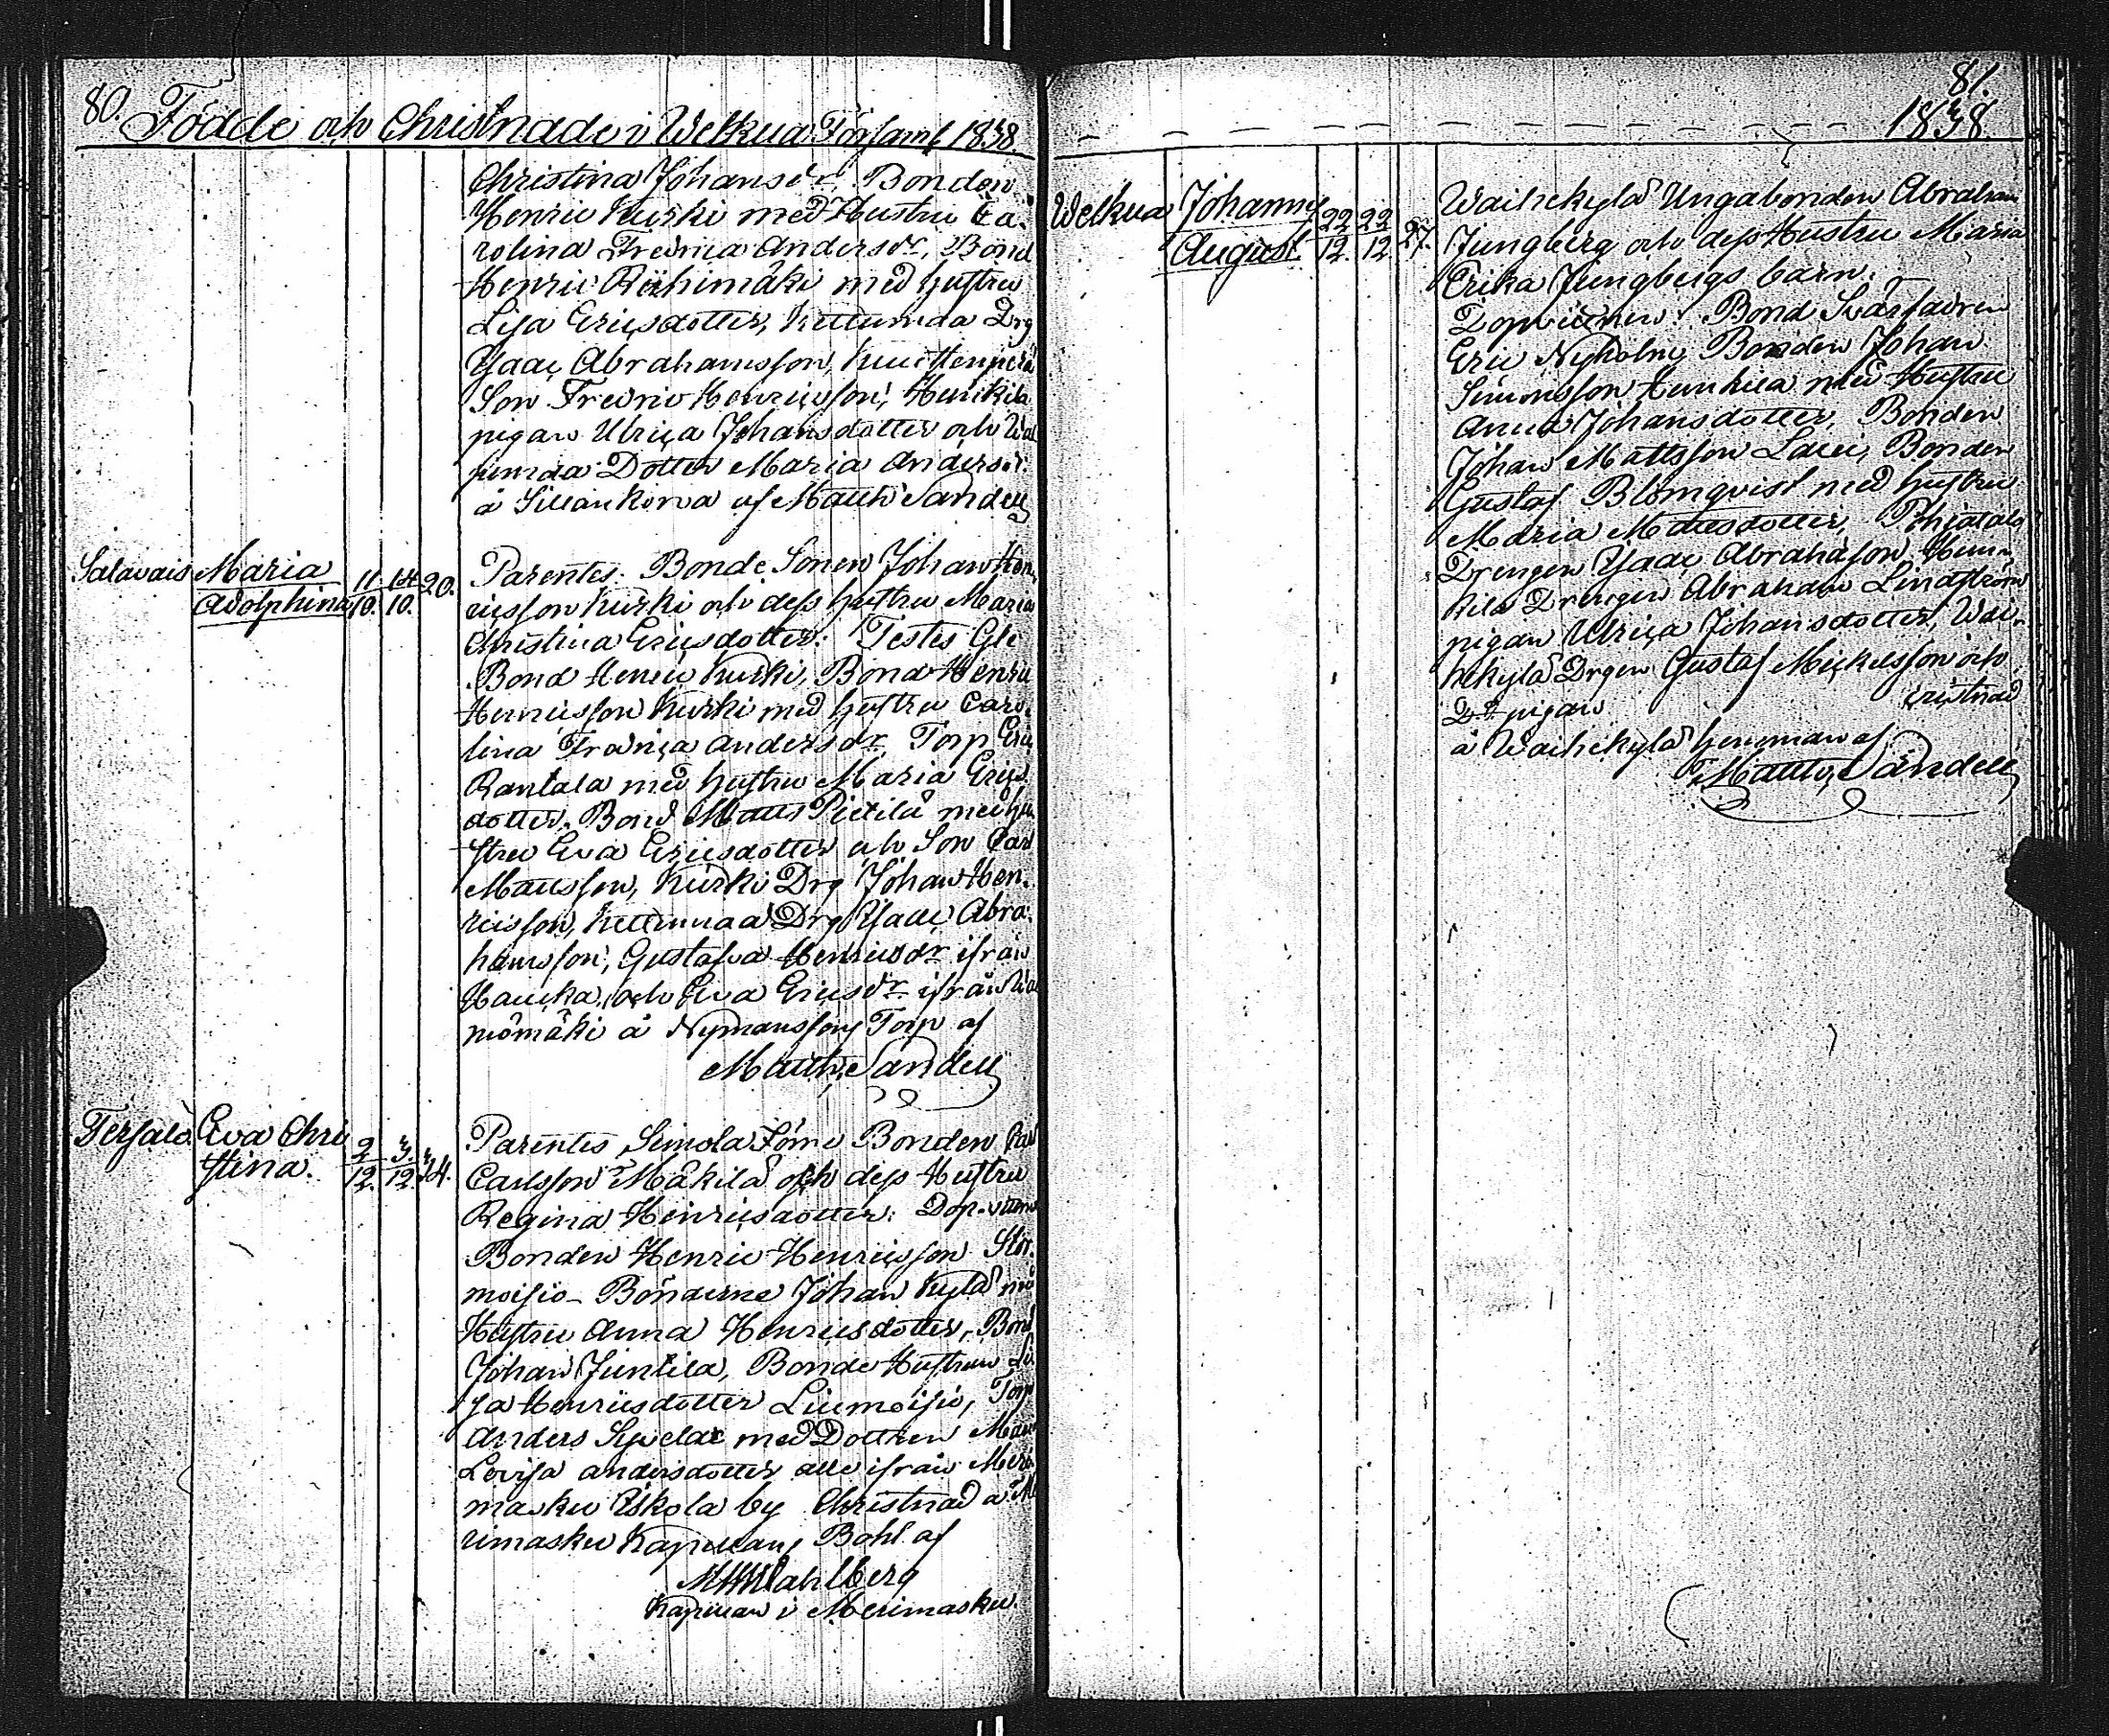 80. Födde och Christnade i Welkua Församl 1838.
Christina Johansdr, Bonden
Henric Kurski med Hustru Ca-
rolina Fredrica Andersdr, Bond
Henric Riihimäki med hustru
Lisa Ericsdotter, Drg
Isaac Abrahamsson,
Son Fredric Henricsson,
pigan Ulrica Johansdotter och
Dotter Maria Andersdr.
å af Matth Sandell
Salavais Maria 11 14 20. Parentes: Bonde Sonen Johan Hen-
Adolphina 10. 10. ricsson Kurki och dess hustru Maria
Christina Ericsdotter: Testes
Bond Henric Kurki, Bond Henric
Henricsson Kurki med hustru Caro-
lina Fredrica Andersdr, Torp Eric
Rantala med hustru Maria Erics-
dotter, Bond Matts Pietilä med hu-
stru Eva Ericsdotter och Son Carl
Mattsson, Kurki Drg Johan Hen-
ricsson, Drg Isaac Abra-
hamsson, Gustafva Henricsdr ifrån
och Eva Ericsdr ifrån
å Nymanssons Torp af
Matth. Sandell
Tersalo. Eva Chri 2 3. 14. Parentes Simola Bonden Carl
stina. 12. 12. Carlsson Mäkilä och dess Hustru
Regina Henricsdotter: Dop-vittnen
Bonden Henric Henricsson Stor-
moisio Bönderne Johan Kylä med
Hustru Anna Henricsdotter, Bond
Johan Juntila, Bonde Hustrun Li-
sa Henricsdotter Liumoisio, Torp
Anders med Dottren
Lovisa Andersdotter alle ifrån Meri-
masku Iskola by Christnad a Me-
rimasku Kapellans Bohl af
Wahlberg
Kapellan i Merimasku
81.
1838.
Welkua Johannes 22 22 27. Waihekylä Ungabonden Abraham
August. 12. 12. Jungberg och dess Hustru Maria
Erika Jungbergs barn.
Dopvittnen: Bond Svärfadren
Eric Nyholm, Bonden Johan
Simonsson med Hustru
Anna Johansdotter, Bonden
Johan Mattsson Lauri, Bonden
Gustaf Blomqvist med hustru
Maria Mattsdotter,
Drengen Isaac Abrahasson,
kilä Drengen Abraham Lindström
pigan Ulrica Johansdotter, Wai-
hekylä Drgen Gustaf Mickelsson och
pigan cristnad
å Waihekylä hemman af
Matth. Sandell